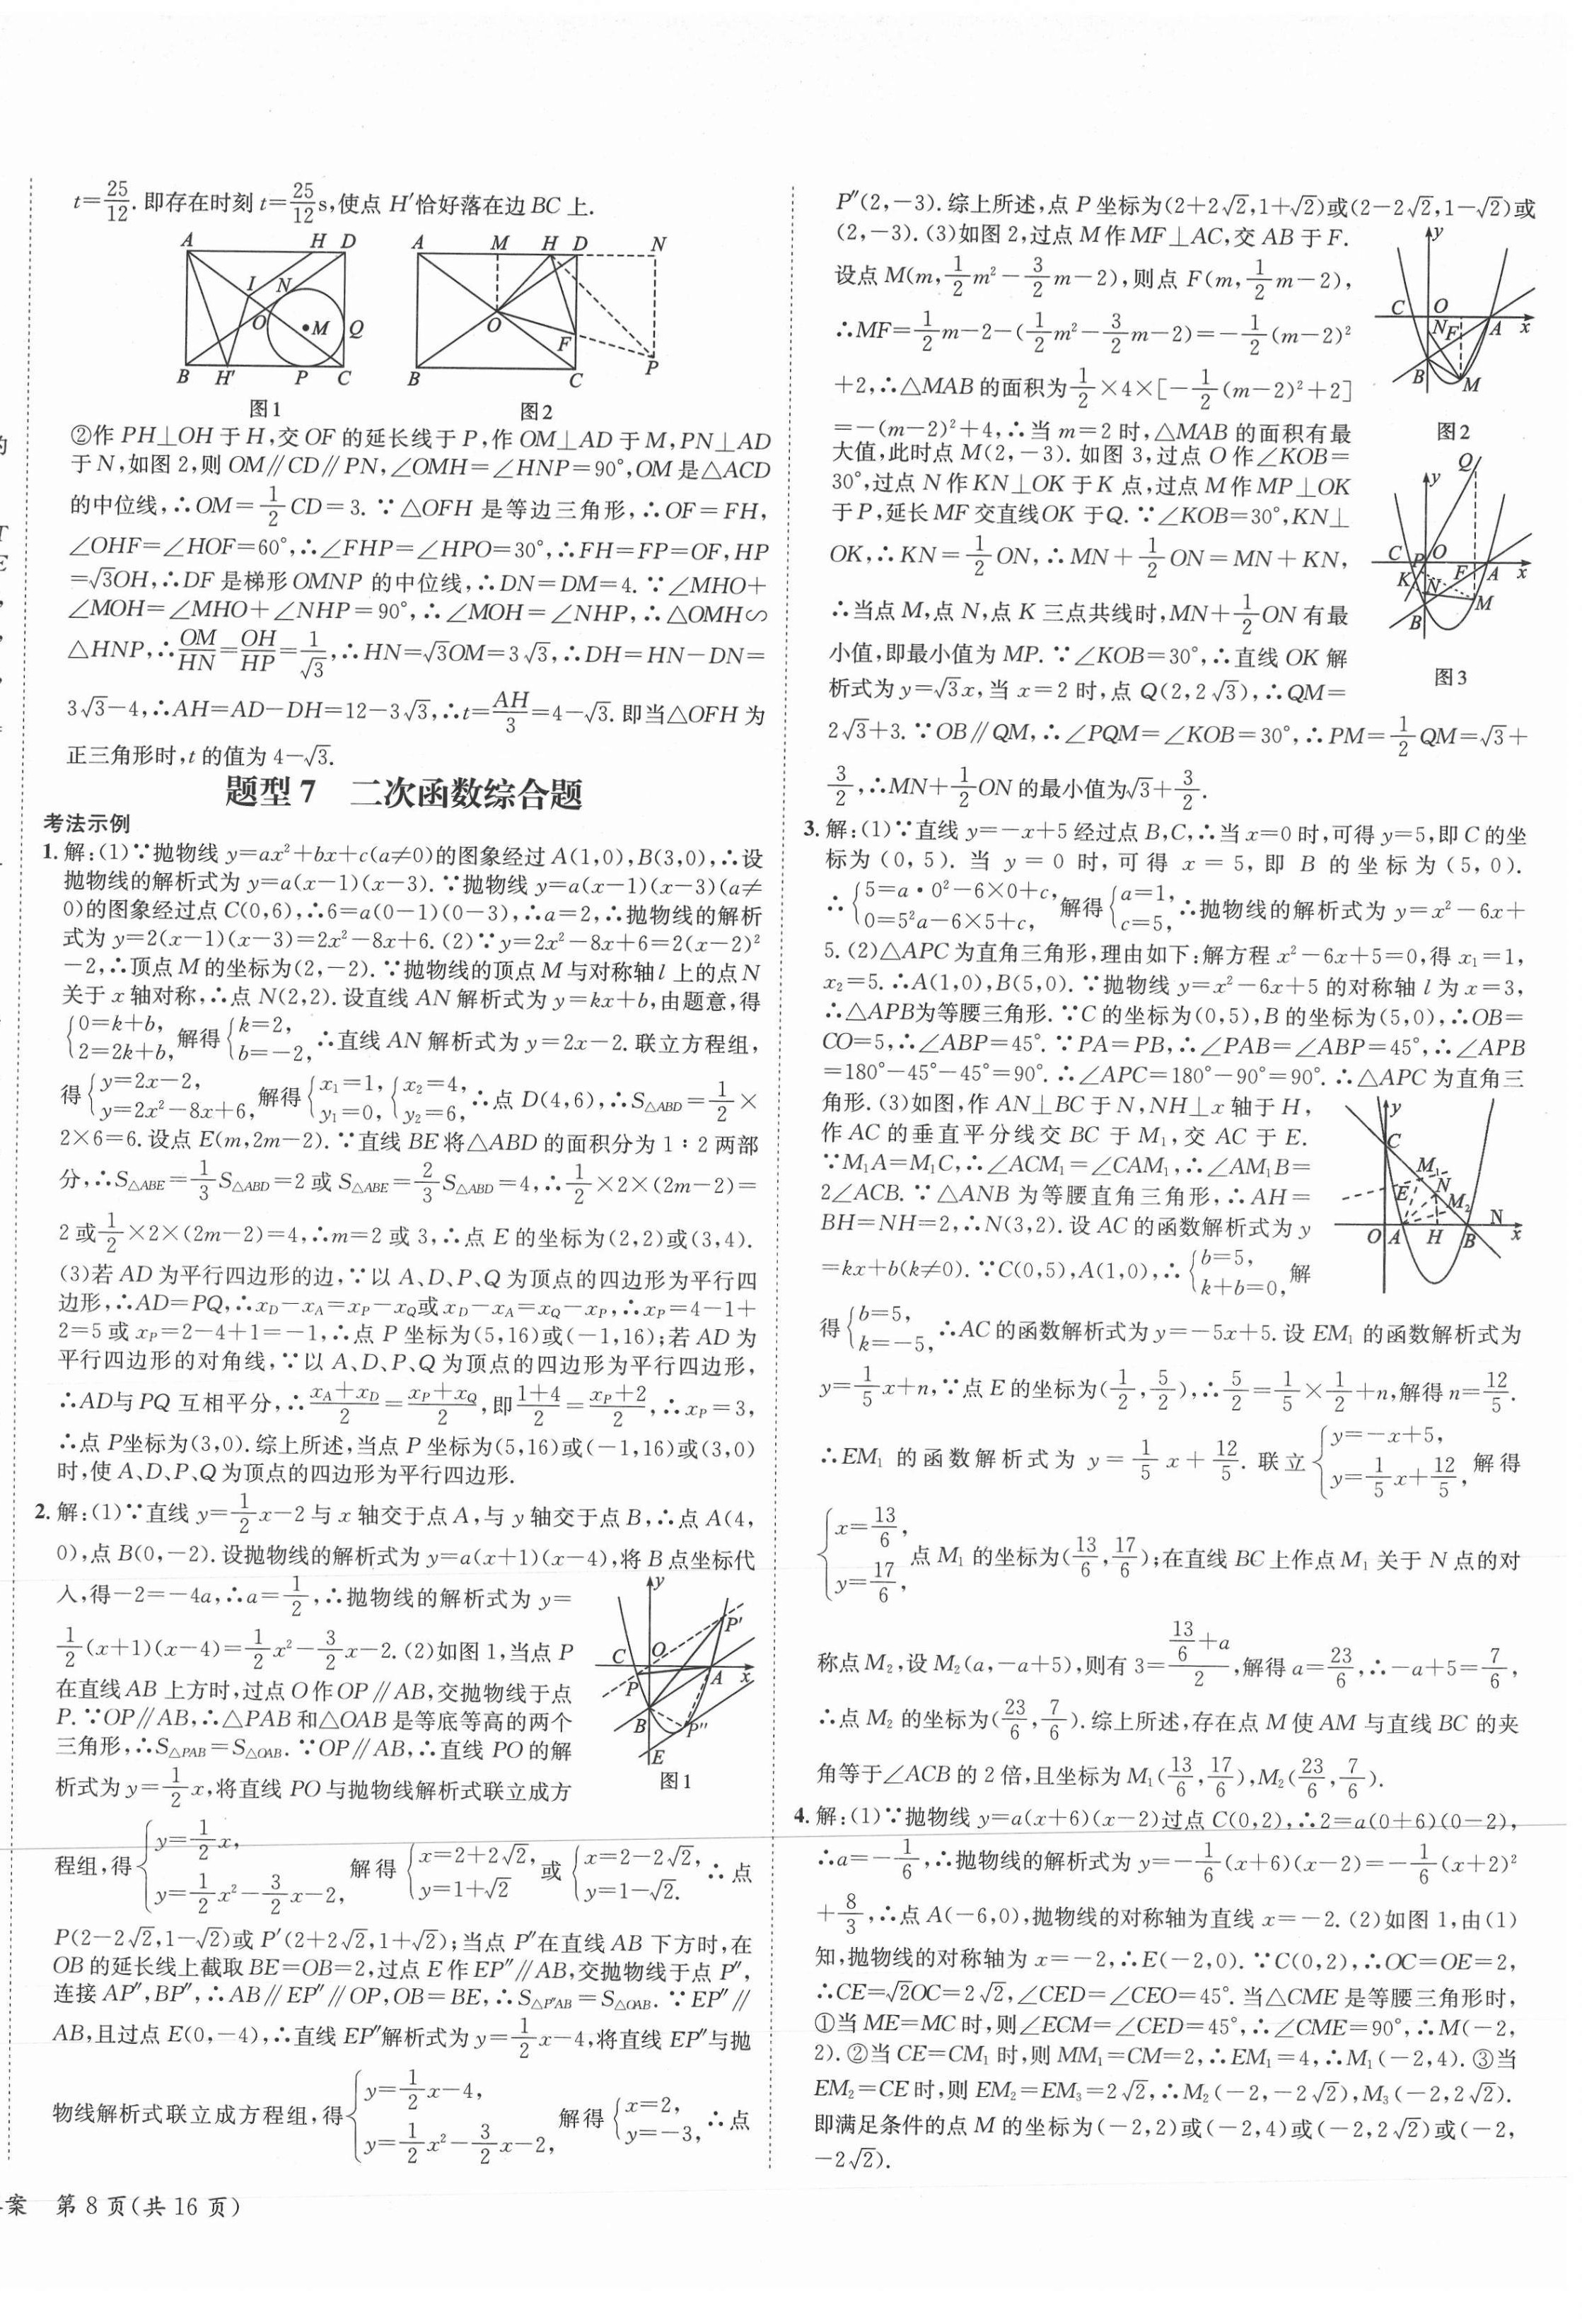 t=25/12.即存在时刻t=25/12 s,使点H′恰好落在边BC上.
A H D A M H D N
I N O M Q O F
B H′ P C B C P
图1 图2
②作PH⊥OH于H,交OF的延长线于P,作OM⊥AD于M,PN⊥AD
于N,如图2,则OM∥CD∥PN,∠OMH=∠HNP=90°,OM是△ACD
的中位线,∴OM=1/2CD=3.∵△OFH是等边三角形,∴OF=FH,
∠OHF=∠HOF=60°,∴∠FHP=∠HPO=30°,∴FH=FP=OF,HP
=√3OH,∴DF是梯形OMNP的中位线,∴DN=DM=4.∵∠MHO+
∠MOH=∠MHO+∠NHP=90°,∴∠MOH=∠NHP,∴△OMH∽
△HNP,∴OM/HN=OH/HP=1/√3,∴HN=√3OM=3√3,∴DH=HN-DN=
3√3-4,∴AH=AD-DH=12-3√3,∴t=AH/3=4-√3.即当△OFH为
正三角形时,t的值为4-√3.
题型7 二次函数综合题
考法示例
1.解:(1)∵抛物线y=ax²+bx+c(a≠0)的图象经过A(1,0),B(3,0),∴设
抛物线的解析式为y=a(x-1)(x-3).∵抛物线y=a(x-1)(x-3)(a≠
0)的图象经过点C(0,6),∴6=a(0-1)(0-3),∴a=2,∴抛物线的解析
式为y=2(x-1)(x-3)=2x²-8x+6.(2)∵y=2x²-8x+6=2(x-2)²
-2,∴顶点M的坐标为(2,-2).∵抛物线的顶点M与对称轴l上的点N
关于x轴对称,∴点N(2,2).设直线AN解析式为y=kx+b,由题意,得
{0=k+b, 2=2k+b, 解得{k=2, b=-2, ∴直线AN解析式为y=2x-2.联立方程组,
得{y=2x-2, y=2x²-8x+6, 解得{x₁=1, y₁=0, {x₂=4, y₂=6, ∴点D(4,6),∴S△ABD=1/2×
2×6=6.设点E(m,2m-2).∵直线BE将△ABD的面积分为1∶2两部
分,∴S△ABE=1/3S△ABD=2或S△ABE=2/3S△ABD=4,∴1/2×2×(2m-2)=
2或1/2×2×(2m-2)=4,∴m=2或3,∴点E的坐标为(2,2)或(3,4).
(3)若AD为平行四边形的边,∵以A、D、P、Q为顶点的四边形为平行四
边形,∴AD=PQ,∴x_D-x_A=x_P-x_Q或x_D-x_A=x_Q-x_P,∴x_P=4-1+
2=5或x_P=2-4+1=-1,∴点P坐标为(5,16)或(-1,16);若AD为
平行四边形的对角线,∵以A、D、P、Q为顶点的四边形为平行四边形,
∴AD与PQ互相平分,∴(x_A+x_D)/2=(x_P+x_Q)/2,即(1+4)/2=(x_P+2)/2,∴x_P=3,
∴点P坐标为(3,0).综上所述,当点P坐标为(5,16)或(-1,16)或(3,0)
时,使A、D、P、Q为顶点的四边形为平行四边形.
2.解:(1)∵直线y=1/2x-2与x轴交于点A,与y轴交于点B,∴点A(4,
0),点B(0,-2).设抛物线的解析式为y=a(x+1)(x-4),将B点坐标代
入,得-2=-4a,∴a=1/2,∴抛物线的解析式为y=
1/2(x+1)(x-4)=1/2x²-3/2x-2.(2)如图1,当点P
在直线AB上方时,过点O作OP∥AB,交抛物线于点
P.∵OP∥AB,∴△PAB和△OAB是等底等高的两个
三角形,∴S△PAB=S△OAB.∵OP∥AB,∴直线PO的解
析式为y=1/2x,将直线PO与抛物线解析式联立成方
y P′ C O P A x B P″ E
图1
程组,得{y=1/2x, y=1/2x²-3/2x-2, 解得{x=2+2√2, y=1+√2 或{x=2-2√2, y=1-√2. ∴点
P(2-2√2,1-√2)或P′(2+2√2,1+√2);当点P″在直线AB下方时,在
OB的延长线上截取BE=OB=2,过点E作EP″∥AB,交抛物线于点P″,
连接AP″,BP″,∴AB∥EP″∥OP,OB=BE,∴S△P″AB=S△OAB.∵EP″∥
AB,且过点E(0,-4),∴直线EP″解析式为y=1/2x-4,将直线EP″与抛
物线解析式联立成方程组,得{y=1/2x-4, y=1/2x²-3/2x-2, 解得{x=2, y=-3, ∴点
P″(2,-3).综上所述,点P坐标为(2+2√2,1+√2)或(2-2√2,1-√2)或
(2,-3).(3)如图2,过点M作MF⊥AC,交AB于F.
设点M(m,1/2m²-3/2m-2),则点F(m,1/2m-2),
∴MF=1/2m-2-(1/2m²-3/2m-2)=-1/2(m-2)²
+2,∴△MAB的面积为1/2×4×[-1/2(m-2)²+2]
=-(m-2)²+4,∴当m=2时,△MAB的面积有最
y C O N F A x B M
图2
大值,此时点M(2,-3).如图3,过点O作∠KOB=
30°,过点N作KN⊥OK于K点,过点M作MP⊥OK
于P,延长MF交直线OK于Q.∵∠KOB=30°,KN⊥
OK,∴KN=1/2ON,∴MN+1/2ON=MN+KN,
∴当点M,点N,点K三点共线时,MN+1/2ON有最
小值,即最小值为MP.∵∠KOB=30°,∴直线OK解
析式为y=√3x,当x=2时,点Q(2,2√3),∴QM=
y Q C P O F A x K N M B
图3
2√3+3.∵OB∥QM,∴∠PQM=∠KOB=30°,∴PM=1/2QM=√3+
3/2,∴MN+1/2ON的最小值为√3+3/2.
3.解:(1)∵直线y=-x+5经过点B,C,∴当x=0时,可得y=5,即C的坐
标为(0,5).当y=0时,可得x=5,即B的坐标为(5,0).
∴{5=a·0²-6×0+c, 0=5²a-6×5+c, 解得{a=1, c=5, ∴抛物线的解析式为y=x²-6x+
5.(2)△APC为直角三角形,理由如下:解方程x²-6x+5=0,得x₁=1,
x₂=5.∴A(1,0),B(5,0).∵抛物线y=x²-6x+5的对称轴l为x=3,
∴△APB为等腰三角形.∵C的坐标为(0,5),B的坐标为(5,0),∴OB=
CO=5,∴∠ABP=45°.∵PA=PB,∴∠PAB=∠ABP=45°,∴∠APB
=180°-45°-45°=90°.∴∠APC=180°-90°=90°.∴△APC为直角三
角形.(3)如图,作AN⊥BC于N,NH⊥x轴于H,
作AC的垂直平分线交BC于M₁,交AC于E.
∵M₁A=M₁C,∴∠ACM₁=∠CAM₁,∴∠AM₁B=
2∠ACB.∵△ANB为等腰直角三角形,∴AH=
BH=NH=2,∴N(3,2).设AC的函数解析式为y
=kx+b(k≠0).∵C(0,5),A(1,0),∴{b=5, k+b=0, 解
y C M₁ E N M₂ N O A H B x
得{b=5, k=-5, ∴AC的函数解析式为y=-5x+5.设EM₁的函数解析式为
y=1/5x+n,∵点E的坐标为(1/2,5/2),∴5/2=1/5×1/2+n,解得n=12/5.
∴EM₁的函数解析式为y=1/5x+12/5.联立{y=-x+5, y=1/5x+12/5, 解得
{x=13/6, y=17/6, 点M₁的坐标为(13/6,17/6);在直线BC上作点M₁关于N点的对
称点M₂,设M₂(a,-a+5),则有3=(13/6+a)/2,解得a=23/6,∴-a+5=7/6,
∴点M₂的坐标为(23/6,7/6).综上所述,存在点M使AM与直线BC的夹
角等于∠ACB的2倍,且坐标为M₁(13/6,17/6),M₂(23/6,7/6).
4.解:(1)∵抛物线y=a(x+6)(x-2)过点C(0,2),∴2=a(0+6)(0-2),
∴a=-1/6,∴抛物线的解析式为y=-1/6(x+6)(x-2)=-1/6(x+2)²
+8/3,∴点A(-6,0),抛物线的对称轴为直线x=-2.(2)如图1,由(1)
知,抛物线的对称轴为x=-2,∴E(-2,0).∵C(0,2),∴OC=OE=2,
∴CE=√2OC=2√2,∠CED=∠CEO=45°.当△CME是等腰三角形时,
①当ME=MC时,则∠ECM=∠CED=45°,∴∠CME=90°,∴M(-2,
2).②当CE=CM₁时,则MM₁=CM=2,∴EM₁=4,∴M₁(-2,4).③当
EM₂=CE时,则EM₂=EM₃=2√2,∴M₂(-2,-2√2),M₃(-2,2√2).
即满足条件的点M的坐标为(-2,2)或(-2,4)或(-2,2√2)或(-2,
-2√2).
案 第8页(共16页)